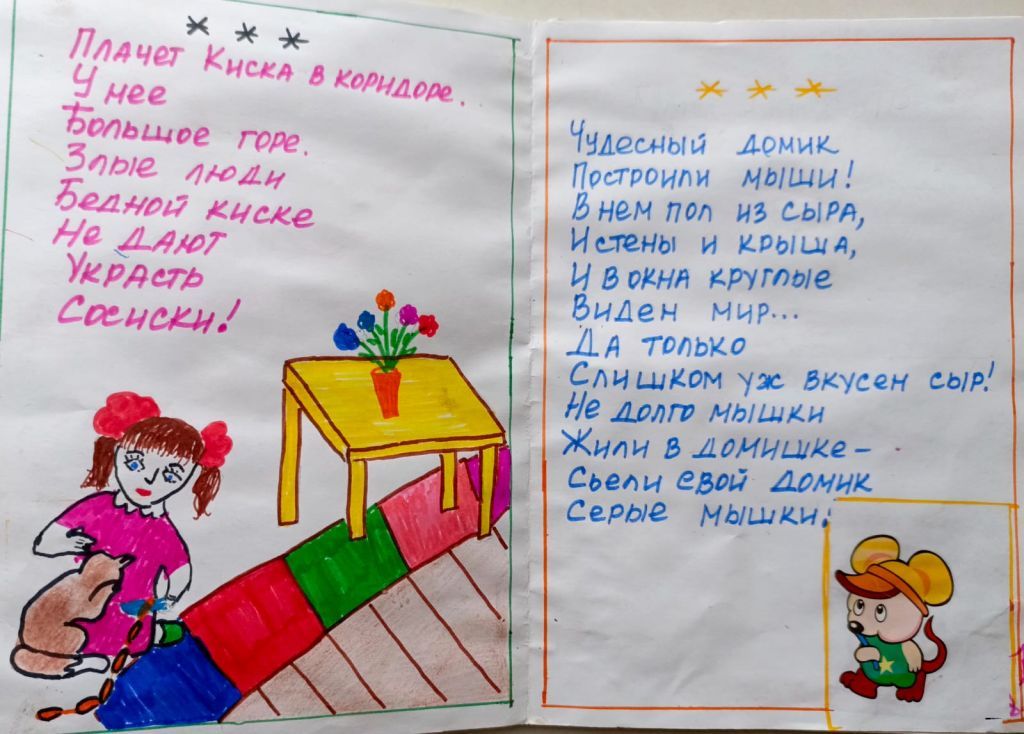 * * *
Плачет Киска в коридоре.
У нее
Большое горе.
Злые люди
Бедной киске
Не дают
Украсть
Сосиски!
* * *
Чудесный домик
Построили мыши!
В нем пол из сыра,
И стены и крыша,
И в окна круглые
Виден мир...
Да только
Слишком уж вкусен сыр!
Не долго мышки
Жили в домишке –
Сьели свой домик
Серые мышки.